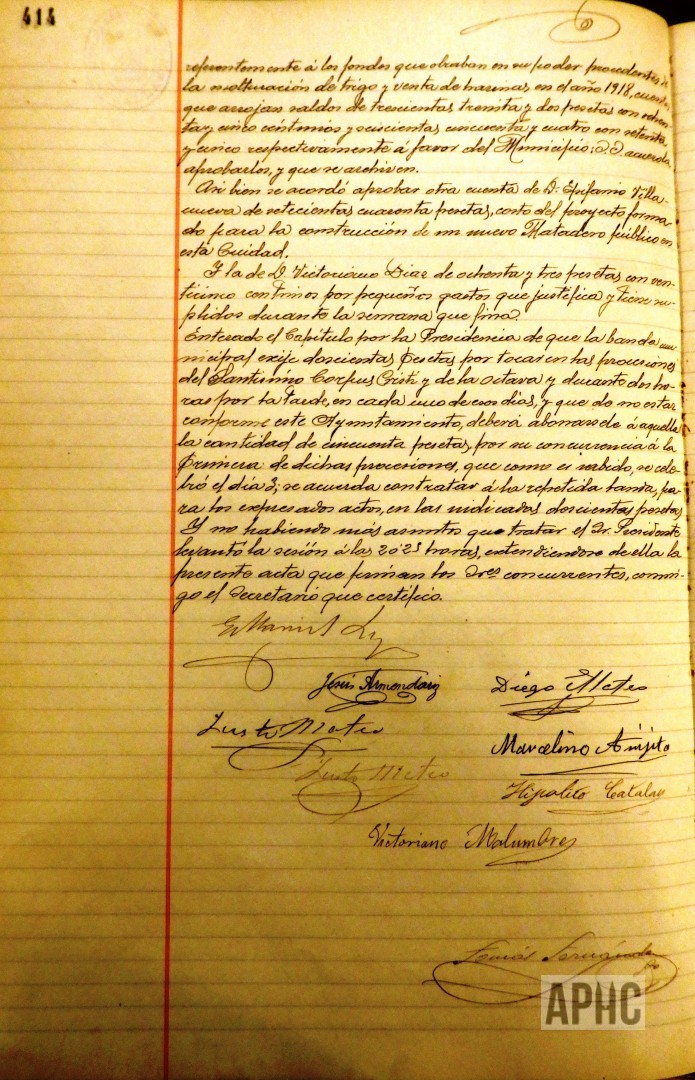 414
referentemente á los fondos que obraban en su poder procedentes de
la molturación de trigo y venta de harinas en el año 1918, cuentas
que arrojan saldos de trescientas treinta y dos pesetas con ochen-
ta y cinco céntimos y seiscientas cincuenta y cuatro con setenta
y cinco respectivamente á favor del Municipio; S.S. acuerda
aprobarlos, y que se archiven.
Asi bien se acordó aprobar otra cuenta de D. Epifanio Villa-
nueva de setecientas cuarenta pesetas, costo del proyecto forma-
do para la construcción de un nuevo Matadero público en
esta Ciudad.
Y la de D. Victoriano Diaz de ochenta y tres pesetas con vein-
ticinco centimos por pequeños gastos que justifica y tiene su-
plidos durante la semana que fina.
Enterado el Capitulo por la Presidencia de que la banda mu-
nicipal exije doscientas Pesetas por tocar en las procesiones
del Santisimo Corpus Cristi y de la octava y durante dos ho-
ras por la tarde, en cada uno de esos dias, y que de no estar
conforme este Ayuntamiento, deberá abonarse á aquella
la cantidad de cincuenta pesetas, por su concurrencia á la
Primera de dichas procesiones, que como es sabido, se cele-
bró el dia 3; se acuerda contratar á la repetida banda, pa-
ra los expresados actos, en las indicadas doscientas pesetas
Y no habiendo más asuntos que tratar el Sr. Presidente
levantó la sesión á las 20'25 horas, extendiendose de ella la
presente acta que firman los Sres concurrentes, conmi-
go el Secretario que certifico.
Jesús Armendariz
Diego Mateo
Justo Mateo
Marcelino
Justo Mateo
Hipolito Catalan
Victoriano Malumbres
Tomás Fernández
APHC